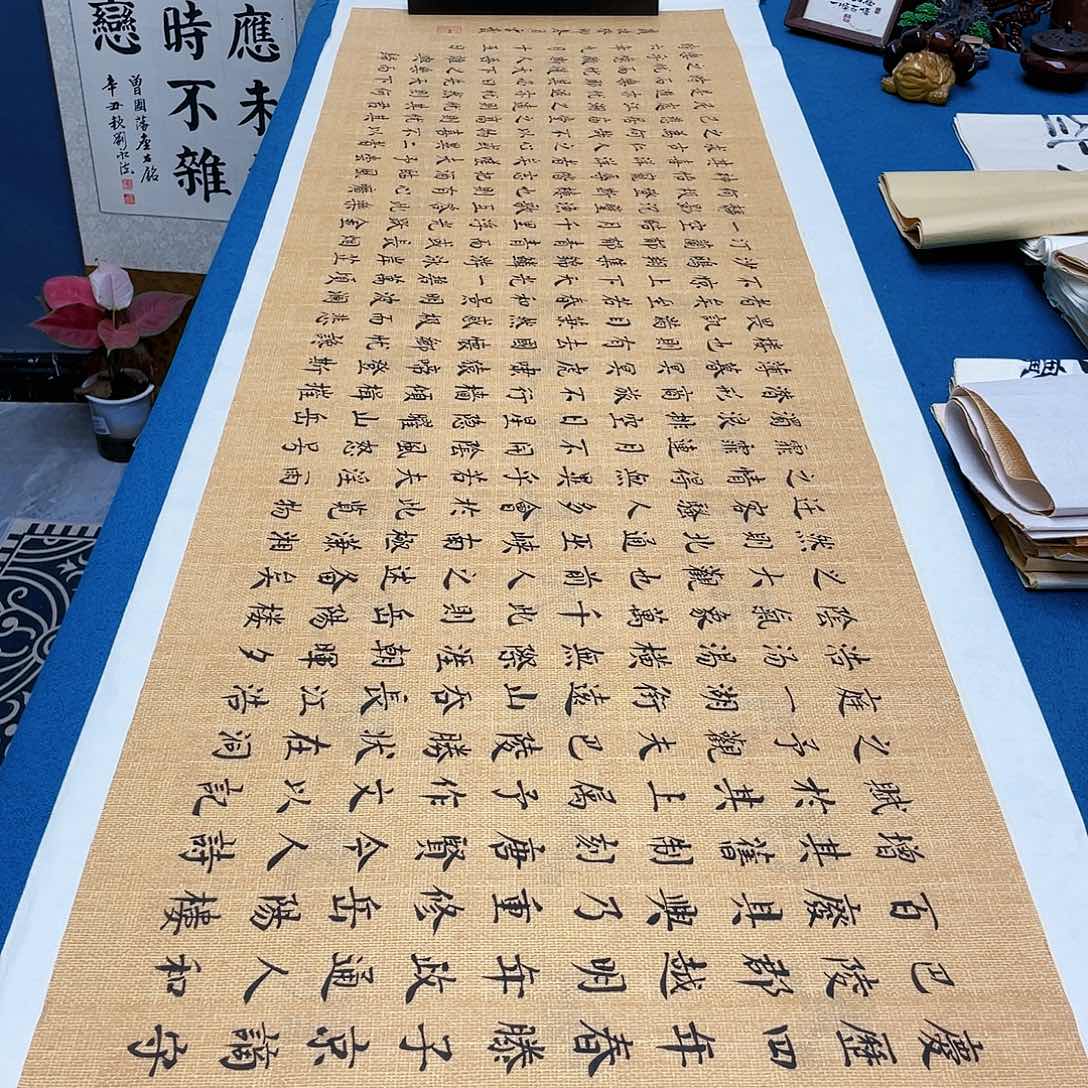 慶歷四年春滕子京謫守
巴陵郡越明年政通人和
百廢具興乃重修岳陽樓
增其舊制刻唐賢今人詩
賦於其上属予作文以記
之予觀夫巴陵勝狀在洞
庭一湖銜遠山吞長江浩
浩湯湯橫無際涯朝暉夕
陰氣象萬千此則岳陽樓
之大觀也前人之述備矣
然則北通巫峽南極瀟湘
迁客騷人多會於此覽物
之情得無異乎若夫淫雨
霏霏連月不開陰風怒號
濁浪排空日星隐曜山岳
潛形商旅不行檣傾楫摧
薄暮冥冥虎嘯猿啼登斯
樓也則有去國懷鄉憂讒
畏譏滿目蕭然感極而悲
者矣至若春和景明波瀾
不驚上下天光一碧萬頃
沙鷗翔集錦鱗游泳岸芷
汀蘭郁郁青青而或長煙
一空皓月千里浮光躍金
靜影沉璧漁歌互答此樂
何極登斯樓也則有心曠
神怡寵辱偕忘把酒臨風
其喜洋洋者矣嗟夫予嘗
求古仁人之心或異二者
之為何哉不以物喜不以
己悲居廟堂之高則憂其
民處江湖之遠則憂其君
是進亦憂退亦憂然則何
應未
時不雜
戀
曾國藩座右銘
辛丑秋劉